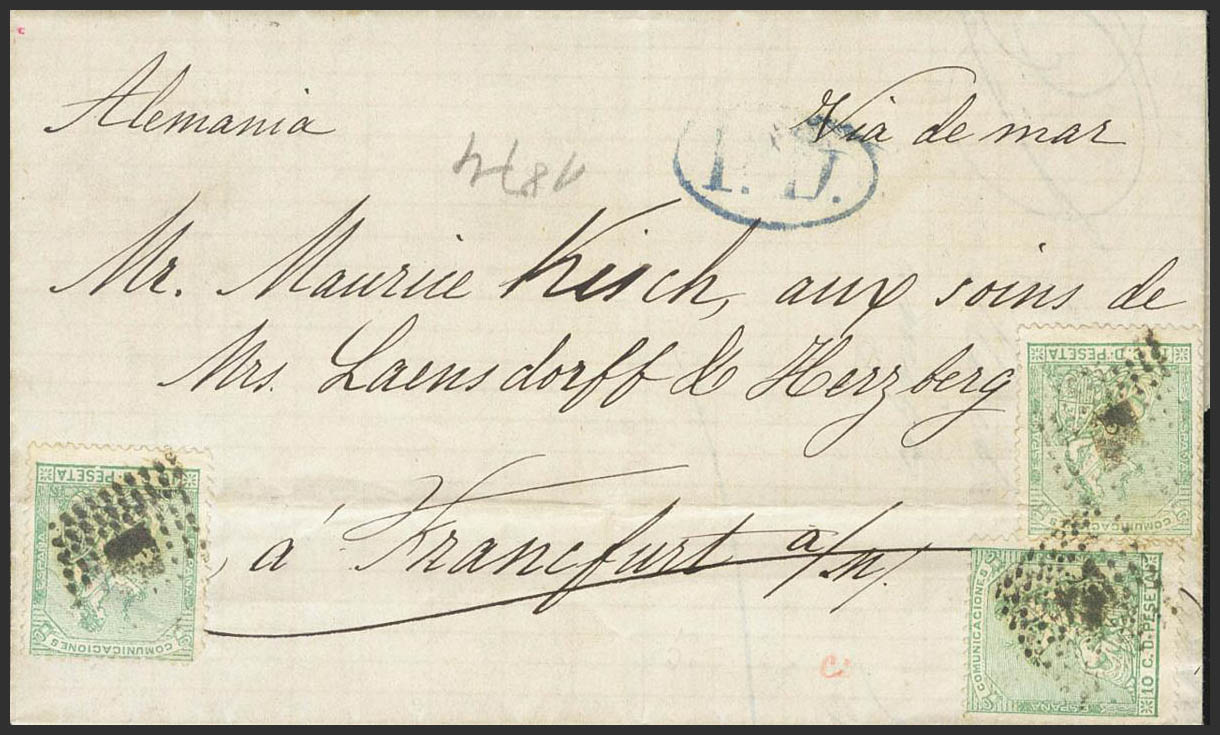 Alemania
Via de mar
1874
P.D.
Mr. Maurice Kisch, aux soins de
Mrs. Laensdorff & Herzberg
, à Francfurt a/m/
C. D. PESETA
ESPAÑA
COMUNICACIONES
C. D. PESETA
ESPAÑA
COMUNICACIONES
COMUNICACIONES
ESPAÑA
10 C. D. PESETA